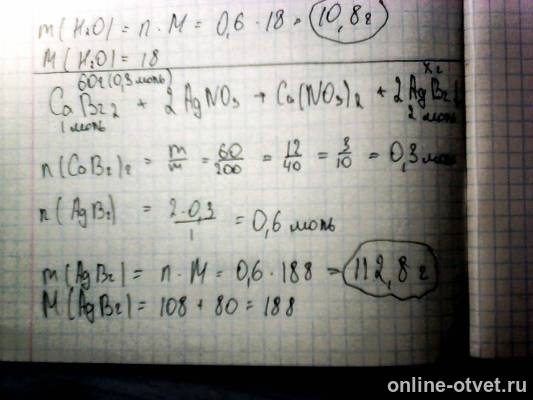 m(H₂O) = n · M = 0,6 · 18 = 10,8 г
M(H₂O) = 18
60г (0,3 моль) x г
CaBr₂ + 2AgNO₃ → Ca(NO₃)₂ + 2AgBr↓
1 моль 2 моль
n(CaBr)₂ = m/m = 60/200 = 12/40 = 3/10 = 0,3 моль
n(AgBr) = 2·0,3/1 = 0,6 моль
m(AgBr) = n · M = 0,6 · 188 = 112,8 г
M(AgBr) = 108 + 80 = 188
online-otvet.ru